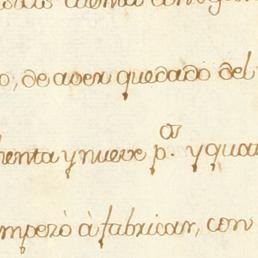 o, de aver quedado del
henta y nueve p.ª y qua
mpezò à fabricar, con